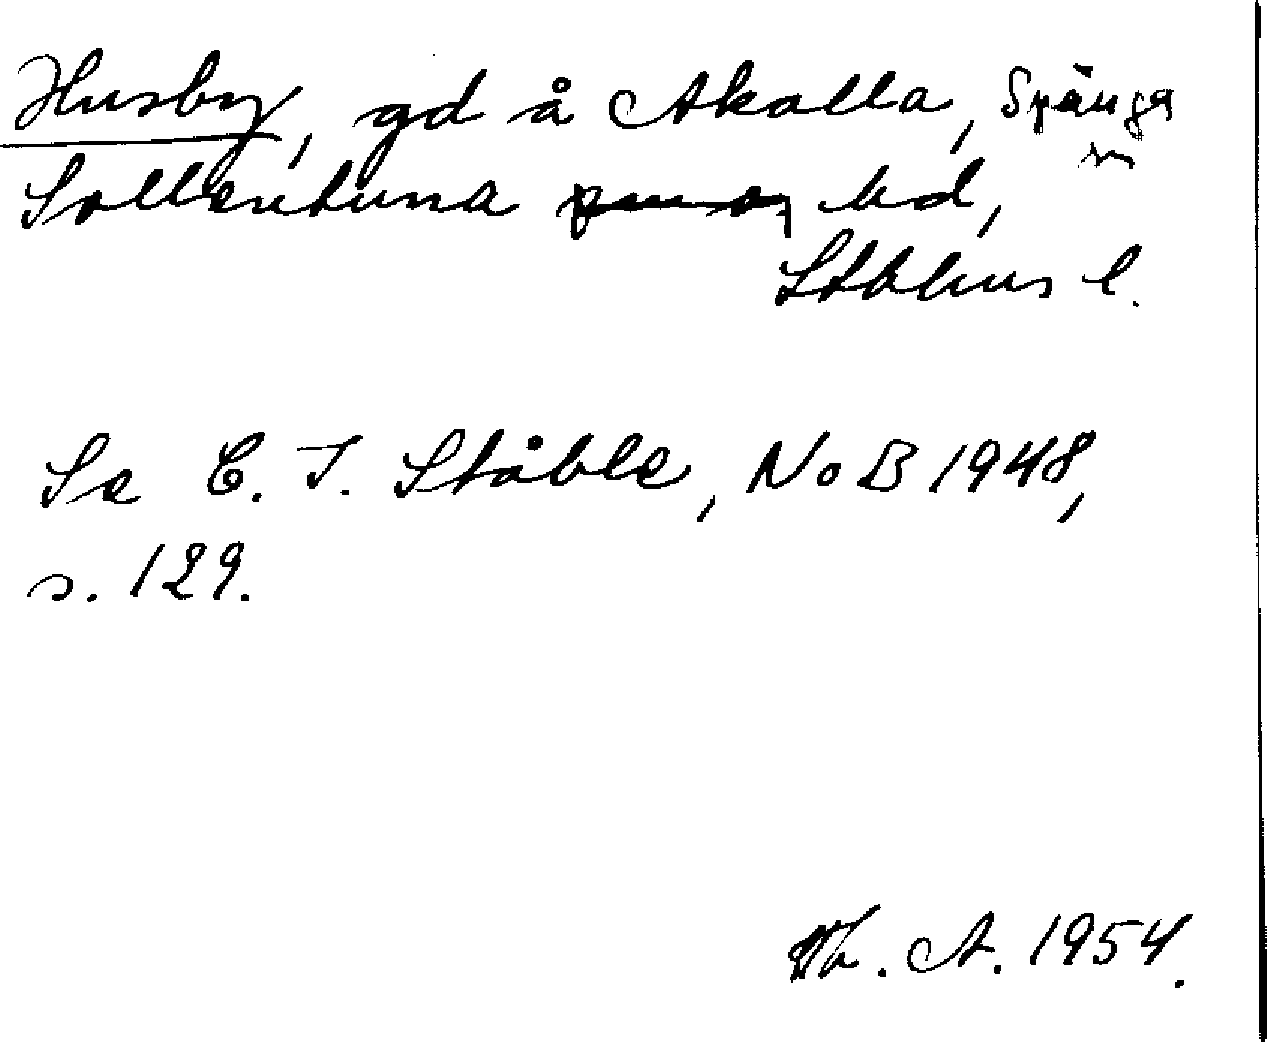 Husby, gd å Akalla, Spånga sn
Sollentuna hd,
Sthlms l.
Se C. I. Ståhle, NoB 1948,
s. 129.
A. 1954.